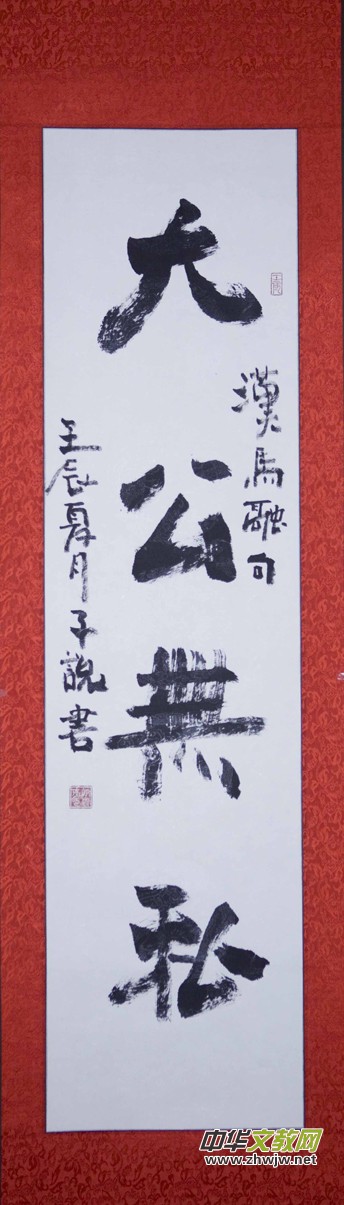 大公無私
漢馬融句
壬辰夏月子說書
壬辰
中华文教网
www.zhwjw.net